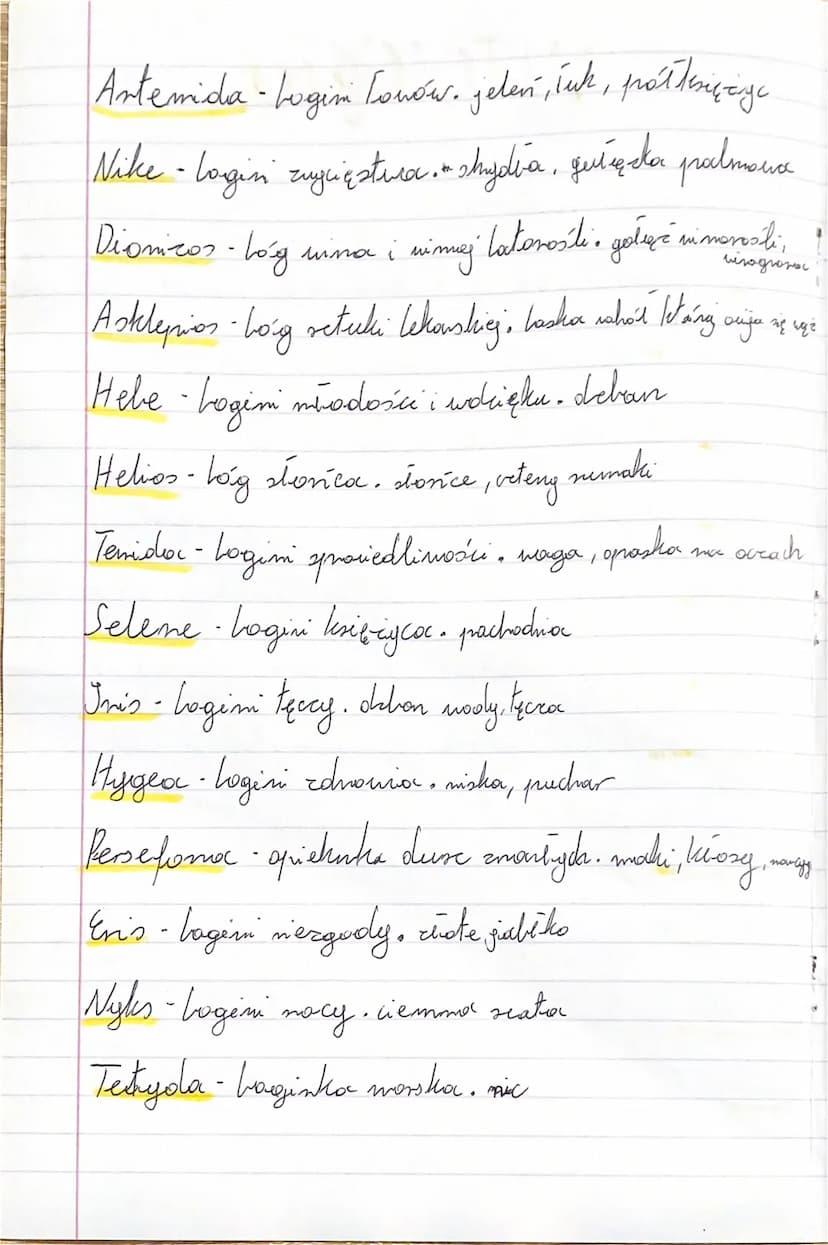 Artemida - bogini łowów. jeleń, łuk, półksiężyc
Nike - bogini zwycięstwa. skrzydła, gałązka palmowa
Dionizos - bóg wina i winnej latorośli. gałąź winorośli,
winogrona
Asklepios - bóg sztuki lekarskiej. laska wokół której owija się wąż
Hebe - bogini młodości i wdzięku. dzban
Helios - bóg słońca. słońce, cztery rumaki
Temida - bogini sprawiedliwości. waga, opaska na oczach
Selene - bogini księżyca. pochodnia
Iris - bogini tęczy. dzban wody, tęcza
Hygea - bogini zdrowia. miska, puchar
Persefona - opiekunka dusz zmarłych. maki, kłosy,
Eris - bogini niezgody. złote jabłko
Nyks - bogini nocy. ciemna szata
Tetyda - boginka morska. nic